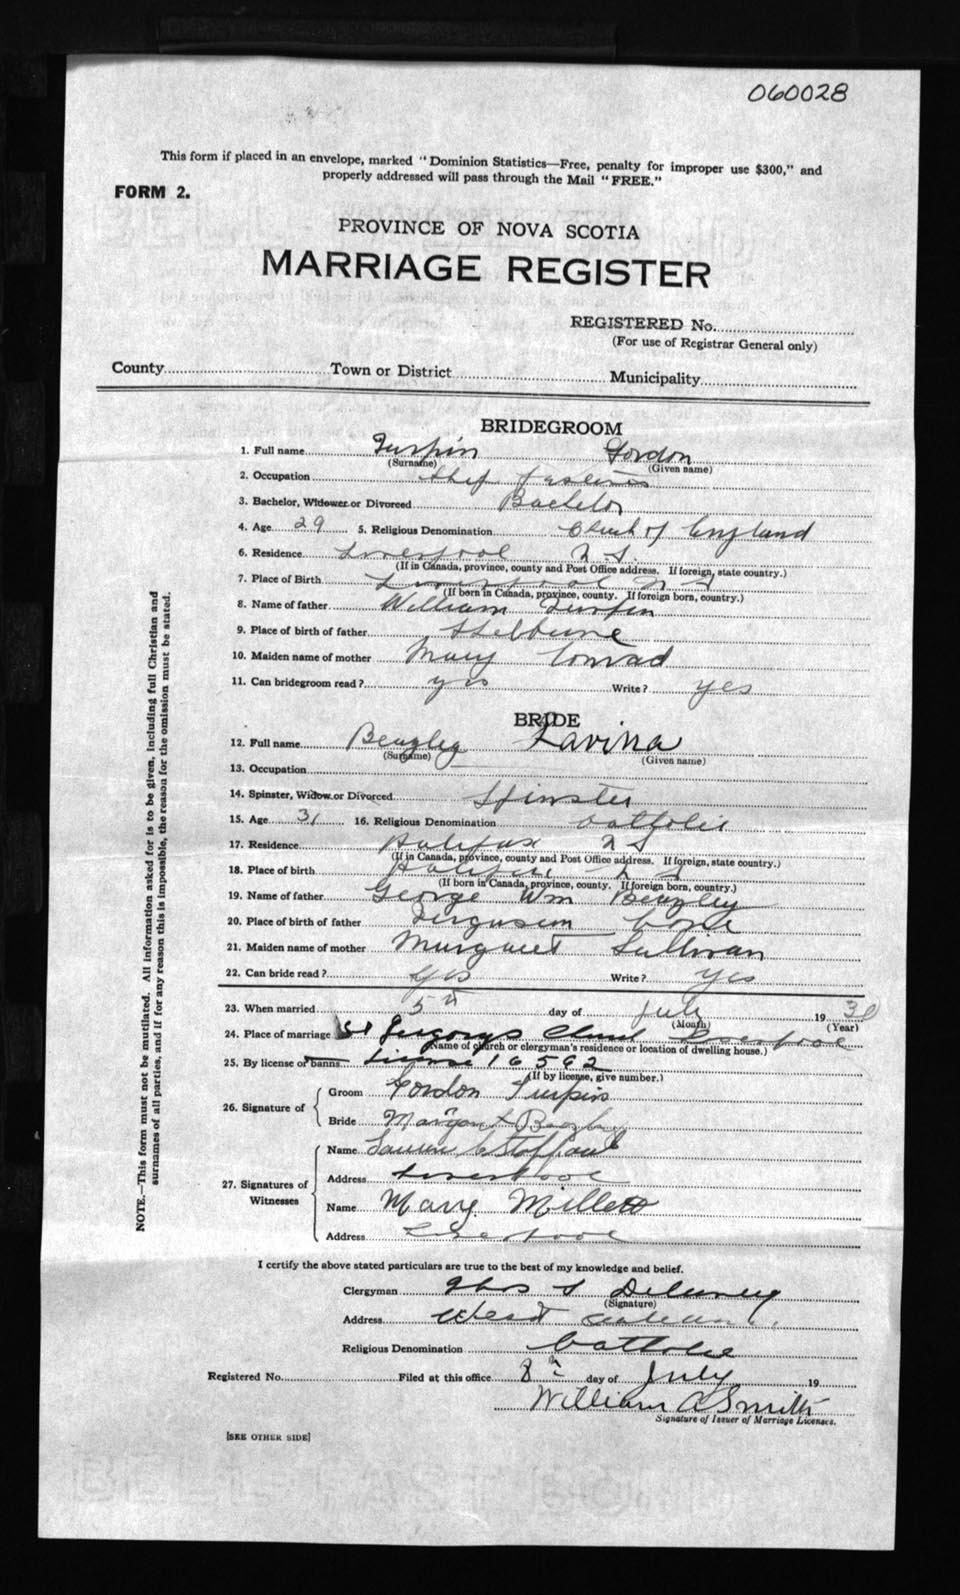 060028
This form if placed in an envelope, marked "Dominion Statistics—Free, penalty for improper use $300," and
properly addressed will pass through the Mail "FREE."
FORM 2.
PROVINCE OF NOVA SCOTIA
MARRIAGE REGISTER
REGISTERED No.
(For use of Registrar General only)
County Town or District Municipality
BRIDEGROOM
1. Full name Turpin Gordon
(Surname) (Given name)
2. Occupation
3. Bachelor, Widower or Divorced Bachelor
4. Age 29 5. Religious Denomination Church of England
6. Residence Liverpool N.S.
(If in Canada, province, county and Post Office address. If foreign, state country.)
7. Place of Birth Liverpool N S
(If born in Canada, province, county. If foreign born, country.)
8. Name of father William Turpin
9. Place of birth of father Shelburne
10. Maiden name of mother Mary Conrad
11. Can bridegroom read? yes Write? yes
BRIDE
12. Full name Beazley Lavina
(Surname) (Given name)
13. Occupation
14. Spinster, Widow or Divorced Spinster
15. Age 31 16. Religious Denomination Catholic
17. Residence Halifax N S
(If in Canada, province, county and Post Office address. If foreign, state country.)
18. Place of birth Halifax N S
(If born in Canada, province, county. If foreign born, country.)
19. Name of father George Wm Beazley
20. Place of birth of father Ferguson Cove
21. Maiden name of mother Margaret Sullivan
22. Can bride read? yes Write? yes
23. When married 5th day of July 19
(Month) (Year)
24. Place of marriage St Gregorys Church Liverpool
(Name of church or clergyman's residence or location of dwelling house.)
25. By license or banns License 16562
(If by license, give number.)
26. Signature of
Groom Gordon Turpin
Bride Margaret Beazley
27. Signatures of Witnesses
Name
Address Liverpool
Name Mary Millett
Address Liverpool
I certify the above stated particulars are true to the best of my knowledge and belief.
Clergyman
(Signature)
Address West
Religious Denomination Catholic
Registered No. Filed at this office 8th day of July 19
William A Smith
Signature of Issuer of Marriage Licenses.
[SEE OTHER SIDE]
NOTE.—This form must not be mutilated. All information asked for is to be given, including full Christian and
surnames of all parties, and if for any reason this is impossible, the reason for the omission must be stated.